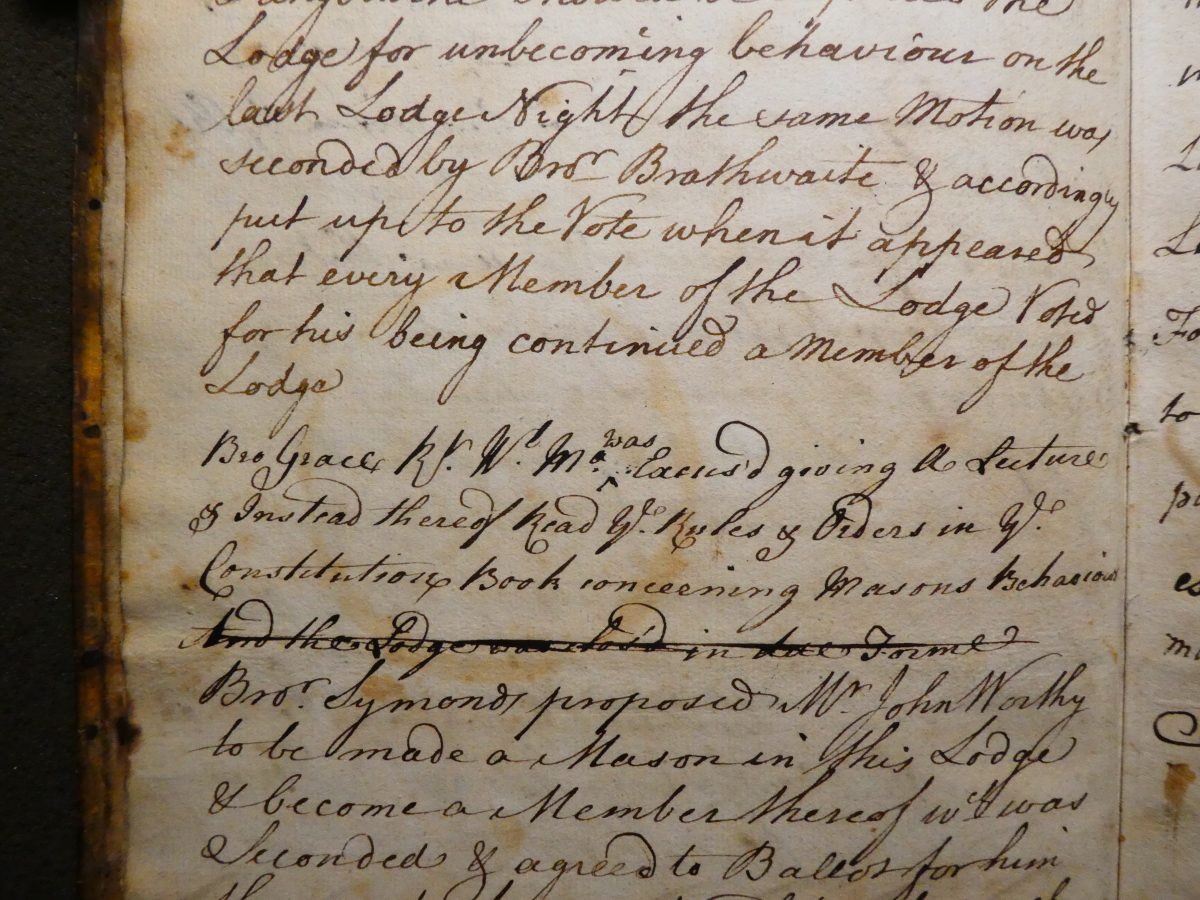 the
Lodge for unbecoming behaviour on the
last Lodge Night, the same Motion was
seconded by Bror Brathwaite & accordingly
put up to the Vote when it appeared
that every Member of the Lodge Voted
for his being continued a Member of the
Lodge
Bro Grace Rt. Wl. Ma. was Excus'd giving A Lecture
& Instead thereof Read Ye. Rules & Orders in Ye.
Constitution Book concerning Masons Behaviour
And the Lodge was Clos'd in due Forme
Bror. Symonds proposed Mr. John Worthy
to be made a Mason in this Lodge
& become a Member thereof wch was
Seconded & agreed to Ballot for him